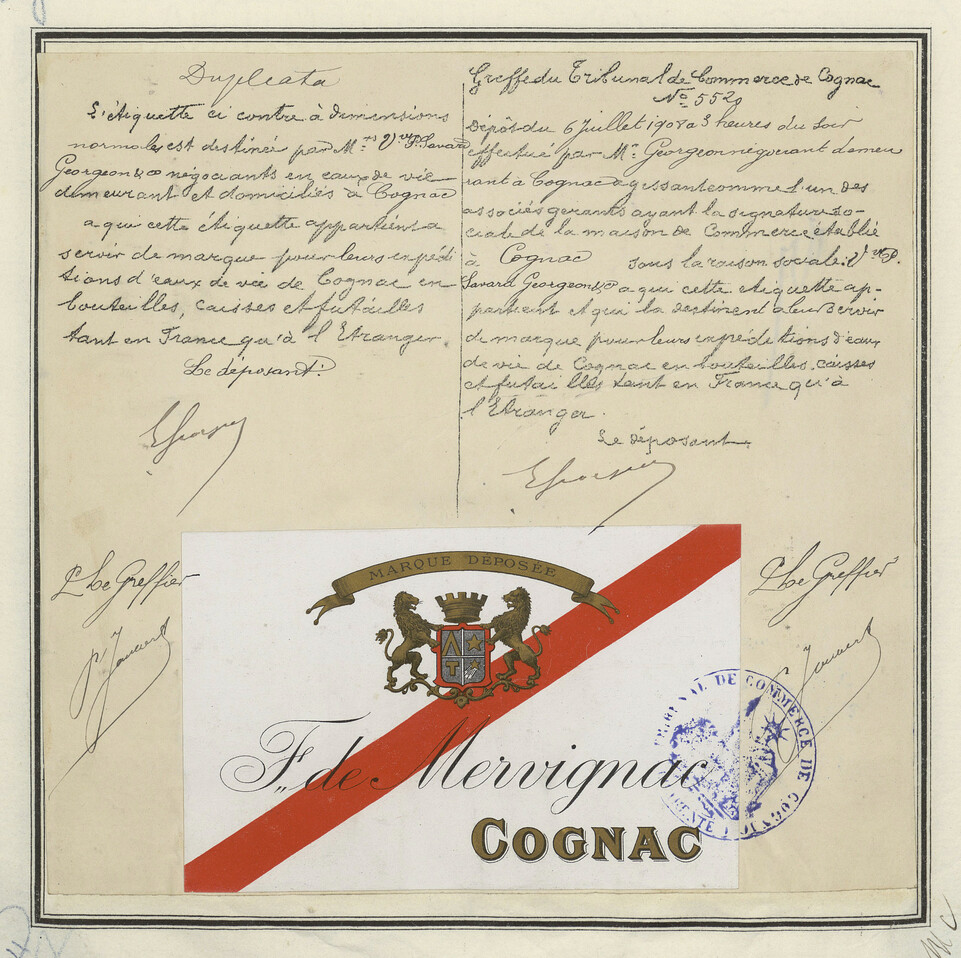 Duplicata
L'étiquette ci contre à dimensions
normales est destinée par Mrs Vve P. Savard
Georgeon & Co négociants en eaux de vie
demeurant et domiciliés à Cognac
a qui cette étiquette appartient a
servir de marque pour leurs expédi
tions d'eaux de vie de Cognac en
bouteilles, caisses et futailles
tant en France qu'à l'Etranger.
Le déposant.
Greffe du Tribunal de Commerce de Cognac
No 552
Dépôt du 6 Juillet 1908 a 3 heures du soir
effectué par Mr. Georgeon négociant demeu
rant à Cognac agissant comme l'un des
associés gerants ayant la signature so-
ciale de la maison de Commerce établie
à Cognac sous la raison sociale: Vve P.
Savard Georgeon & Co a qui cette etiquette ap-
partient et qui la destinent a leur servir
de marque pour leurs expéditions d'eaux
de vie de Cognac en bouteilles, caisses
et futailles tant en France qu'à
l'Etranger.
Le déposant.
Le Greffier
Le Greffier
MARQUE DÉPOSÉE
F. de Mervignac
COGNAC
TRIBUNAL DE COMMERCE DE COGNAC